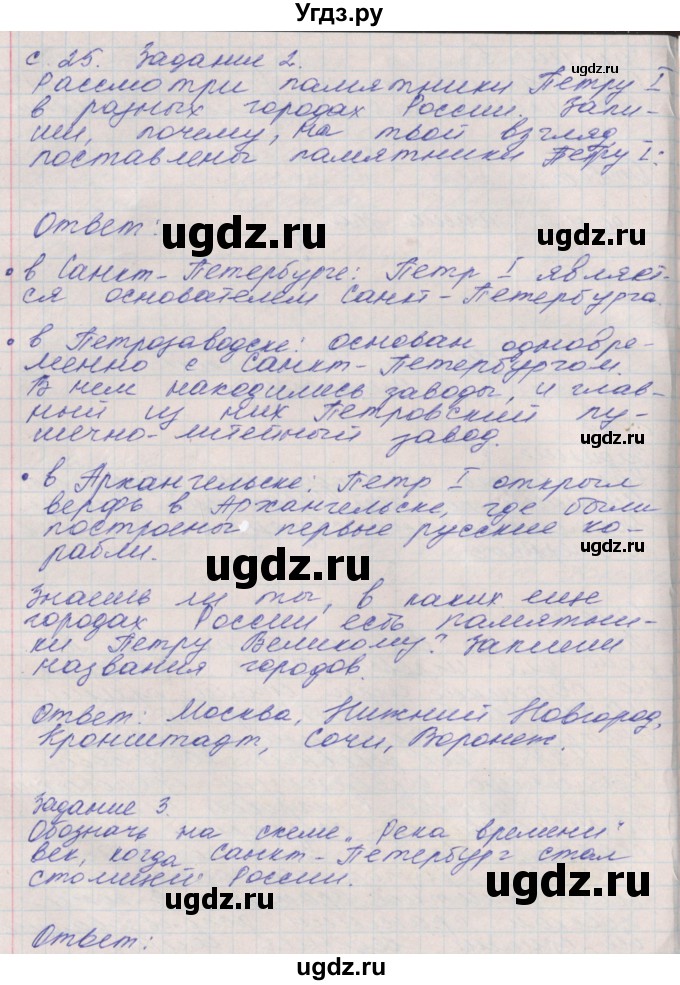 Угдз.ру
с. 25. Задание 2.
Рассмотри памятники Петру I
в разных городах России. Запи-
ши, почему, на твой взгляд,
поставлены памятники Петру I:
Ответ:
• в Санкт-Петербурге: Петр I являет-
ся основателем Санкт-Петербурга.
• в Петрозаводске: основан одновре-
менно с Санкт-Петербургом.
В нем находились заводы, и глав-
ный из них Петровский пу-
шечно-литейный завод.
• в Архангельске: Петр I открыл
верфь в Архангельске, где были
построены первые русские ко-
рабли.
Знаешь ли ты, в каких еще
городах России есть памятни-
ки Петру Великому? Запиши
названия городов.
Ответ: Москва, Нижний Новгород,
Кронштадт, Сочи, Воронеж.
Задание 3.
Обозначь на схеме „Река времени"
век, когда Санкт-Петербург стал
столицей России.
Ответ:
ugdz.ru
ugdz.ru
ugdz.ru
ugdz.ru
ugdz.ru
ugdz.ru
ugdz.ru
ugdz.ru
ugdz.ru
ugdz.ru
ugdz.ru